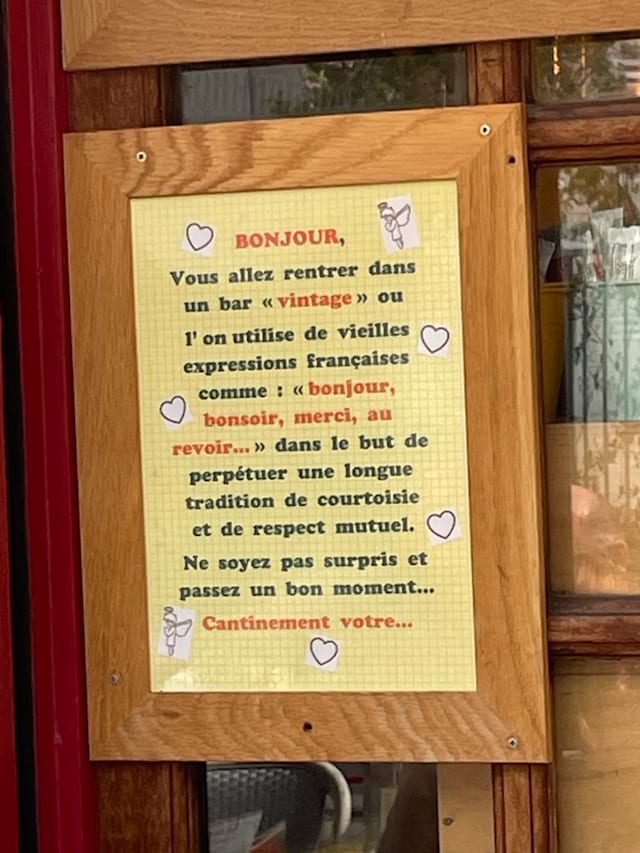 BONJOUR,
Vous allez rentrer dans
un bar « vintage » ou
l' on utilise de vieilles
expressions françaises
comme : « bonjour,
bonsoir, merci, au
revoir... » dans le but de
perpétuer une longue
tradition de courtoisie
et de respect mutuel.
Ne soyez pas surpris et
passez un bon moment...
Cantinement votre...